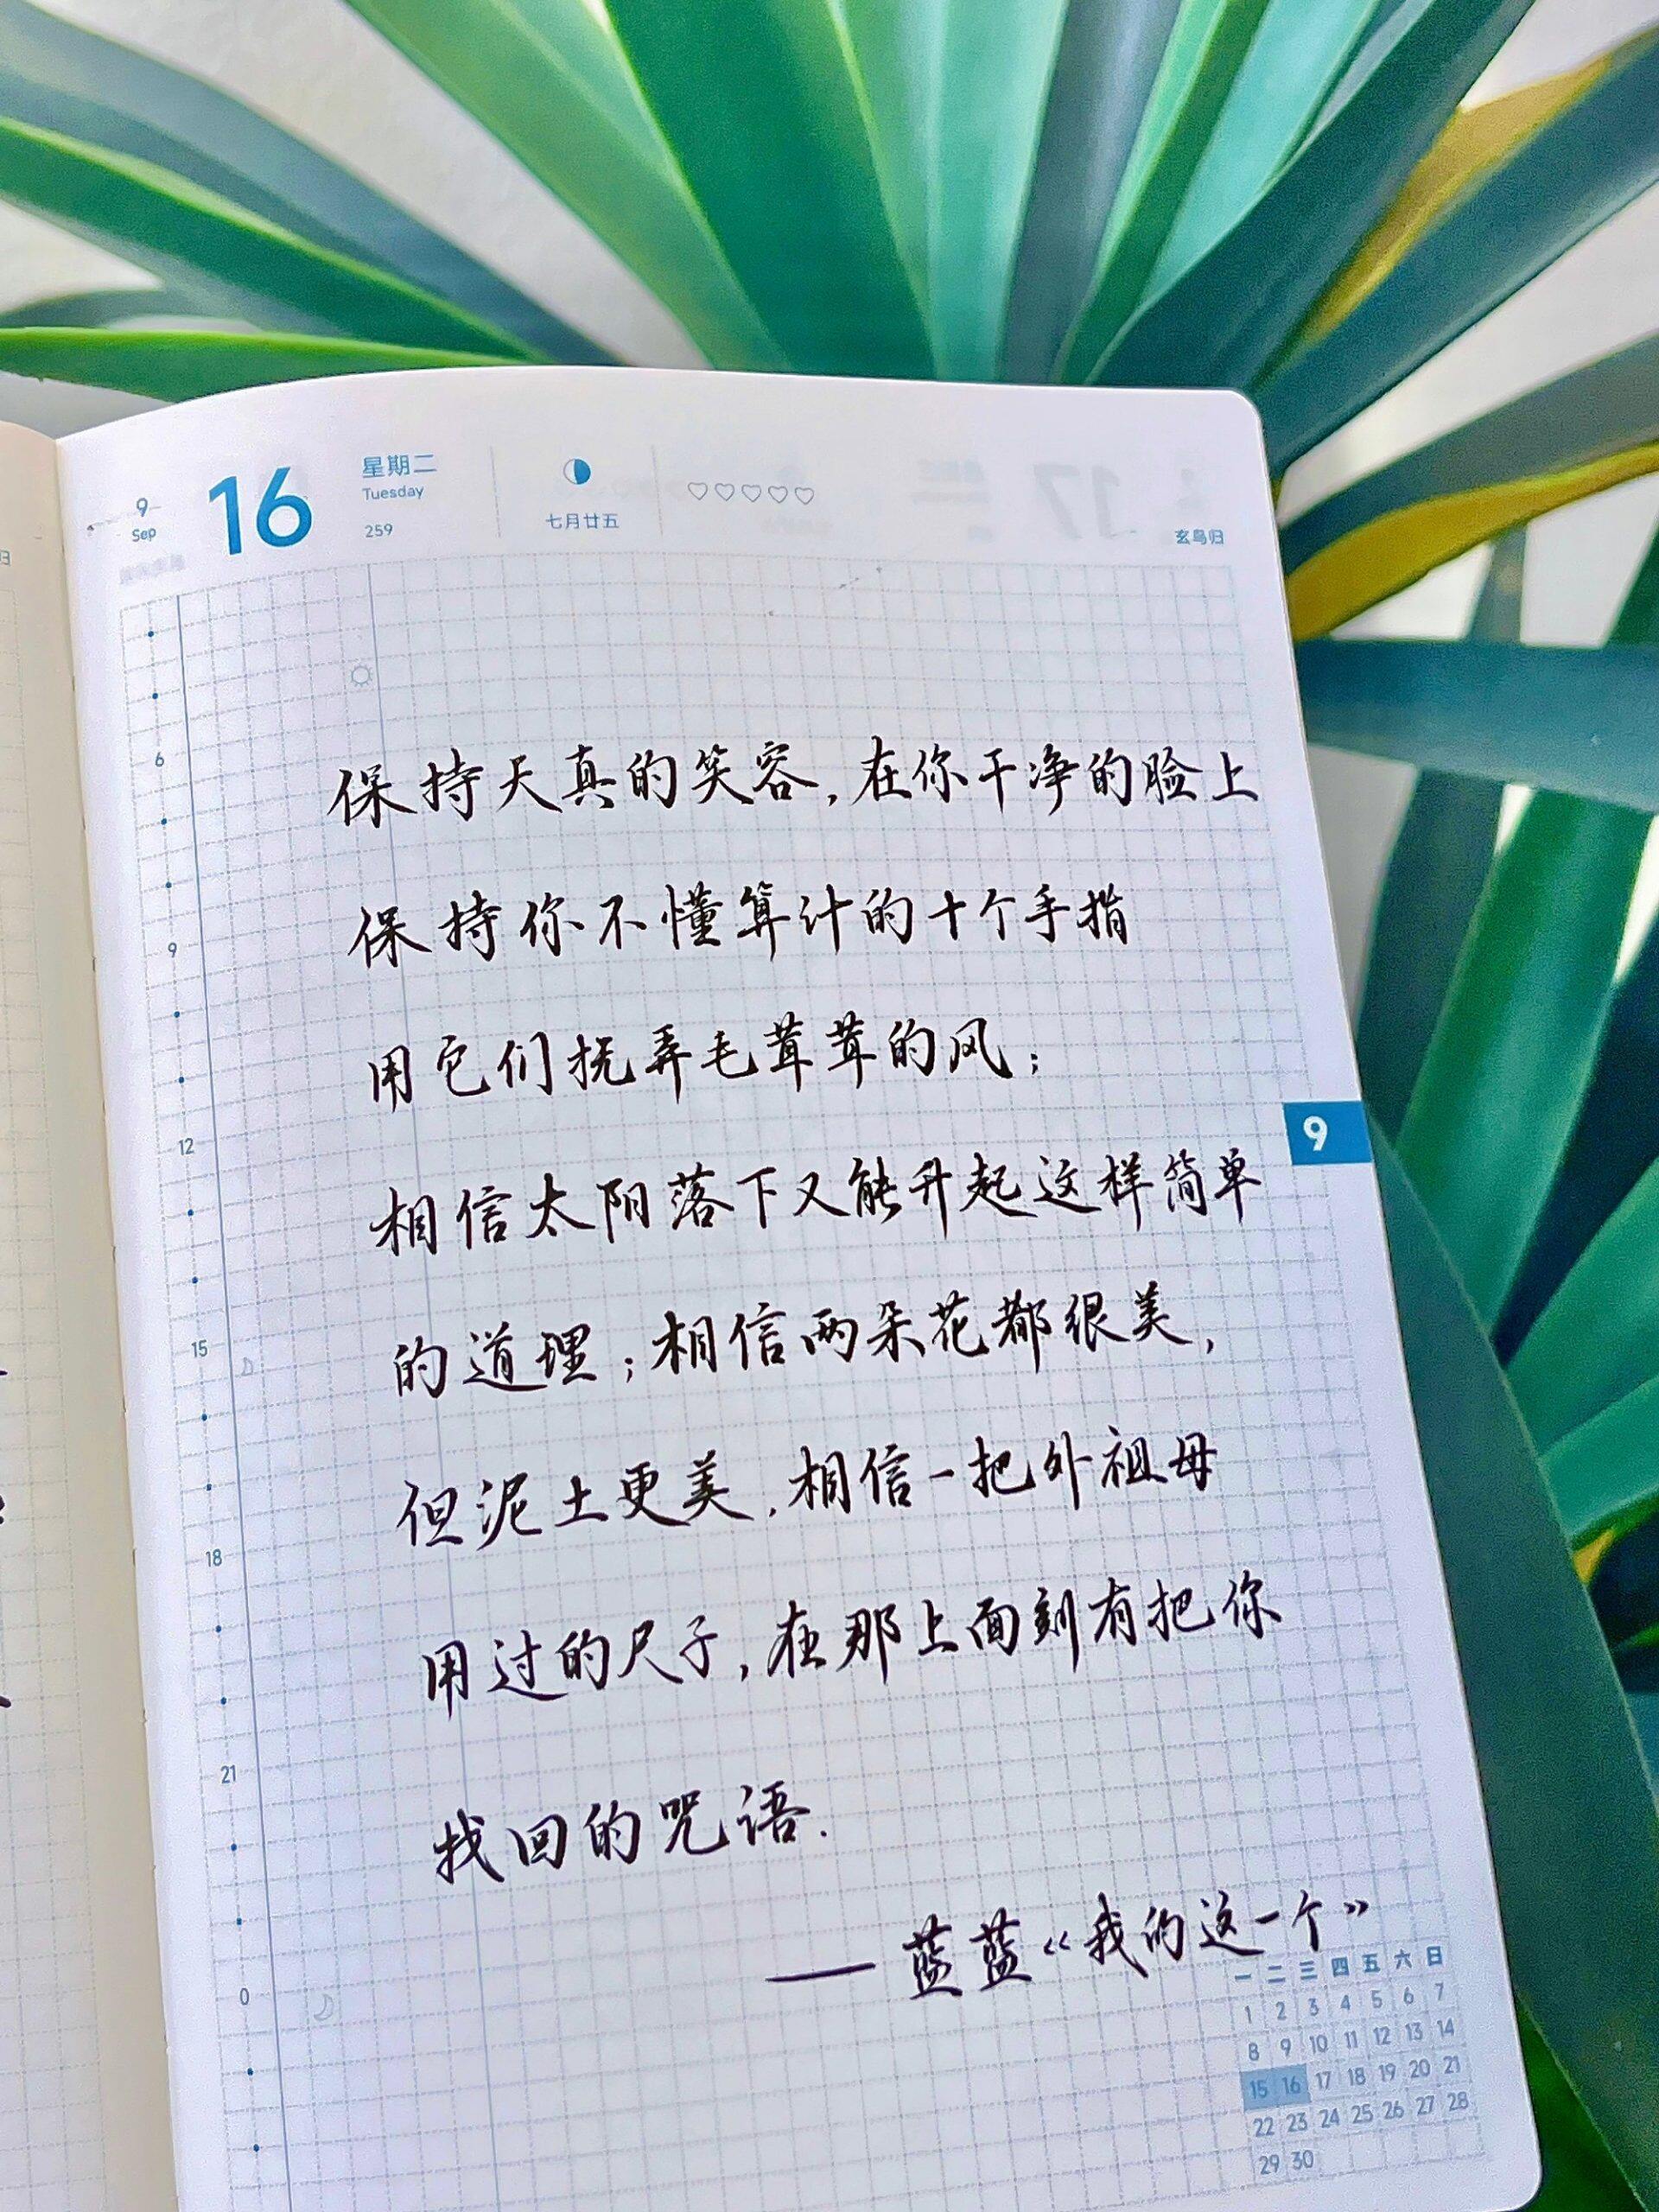 9
Sep
16
星期二
Tuesday
259
七月廿五
玄鸟归
保持天真的笑容,在你干净的脸上
保持你不懂算计的十个手指
用它们抚弄毛茸茸的风;
相信太阳落下又能升起这样简单
的道理;相信两朵花都很美,
但泥土更美.相信一把外祖母
用过的尺子,在那上面刻有把你
找回的咒语.
——蓝蓝《我的这一个》
6
9
12
15
18
21
0
9
一 二 三 四 五 六 日
1 2 3 4 5 6 7
8 9 10 11 12 13 14
15 16 17 18 19 20 21
22 23 24 25 26 27 28
29 30